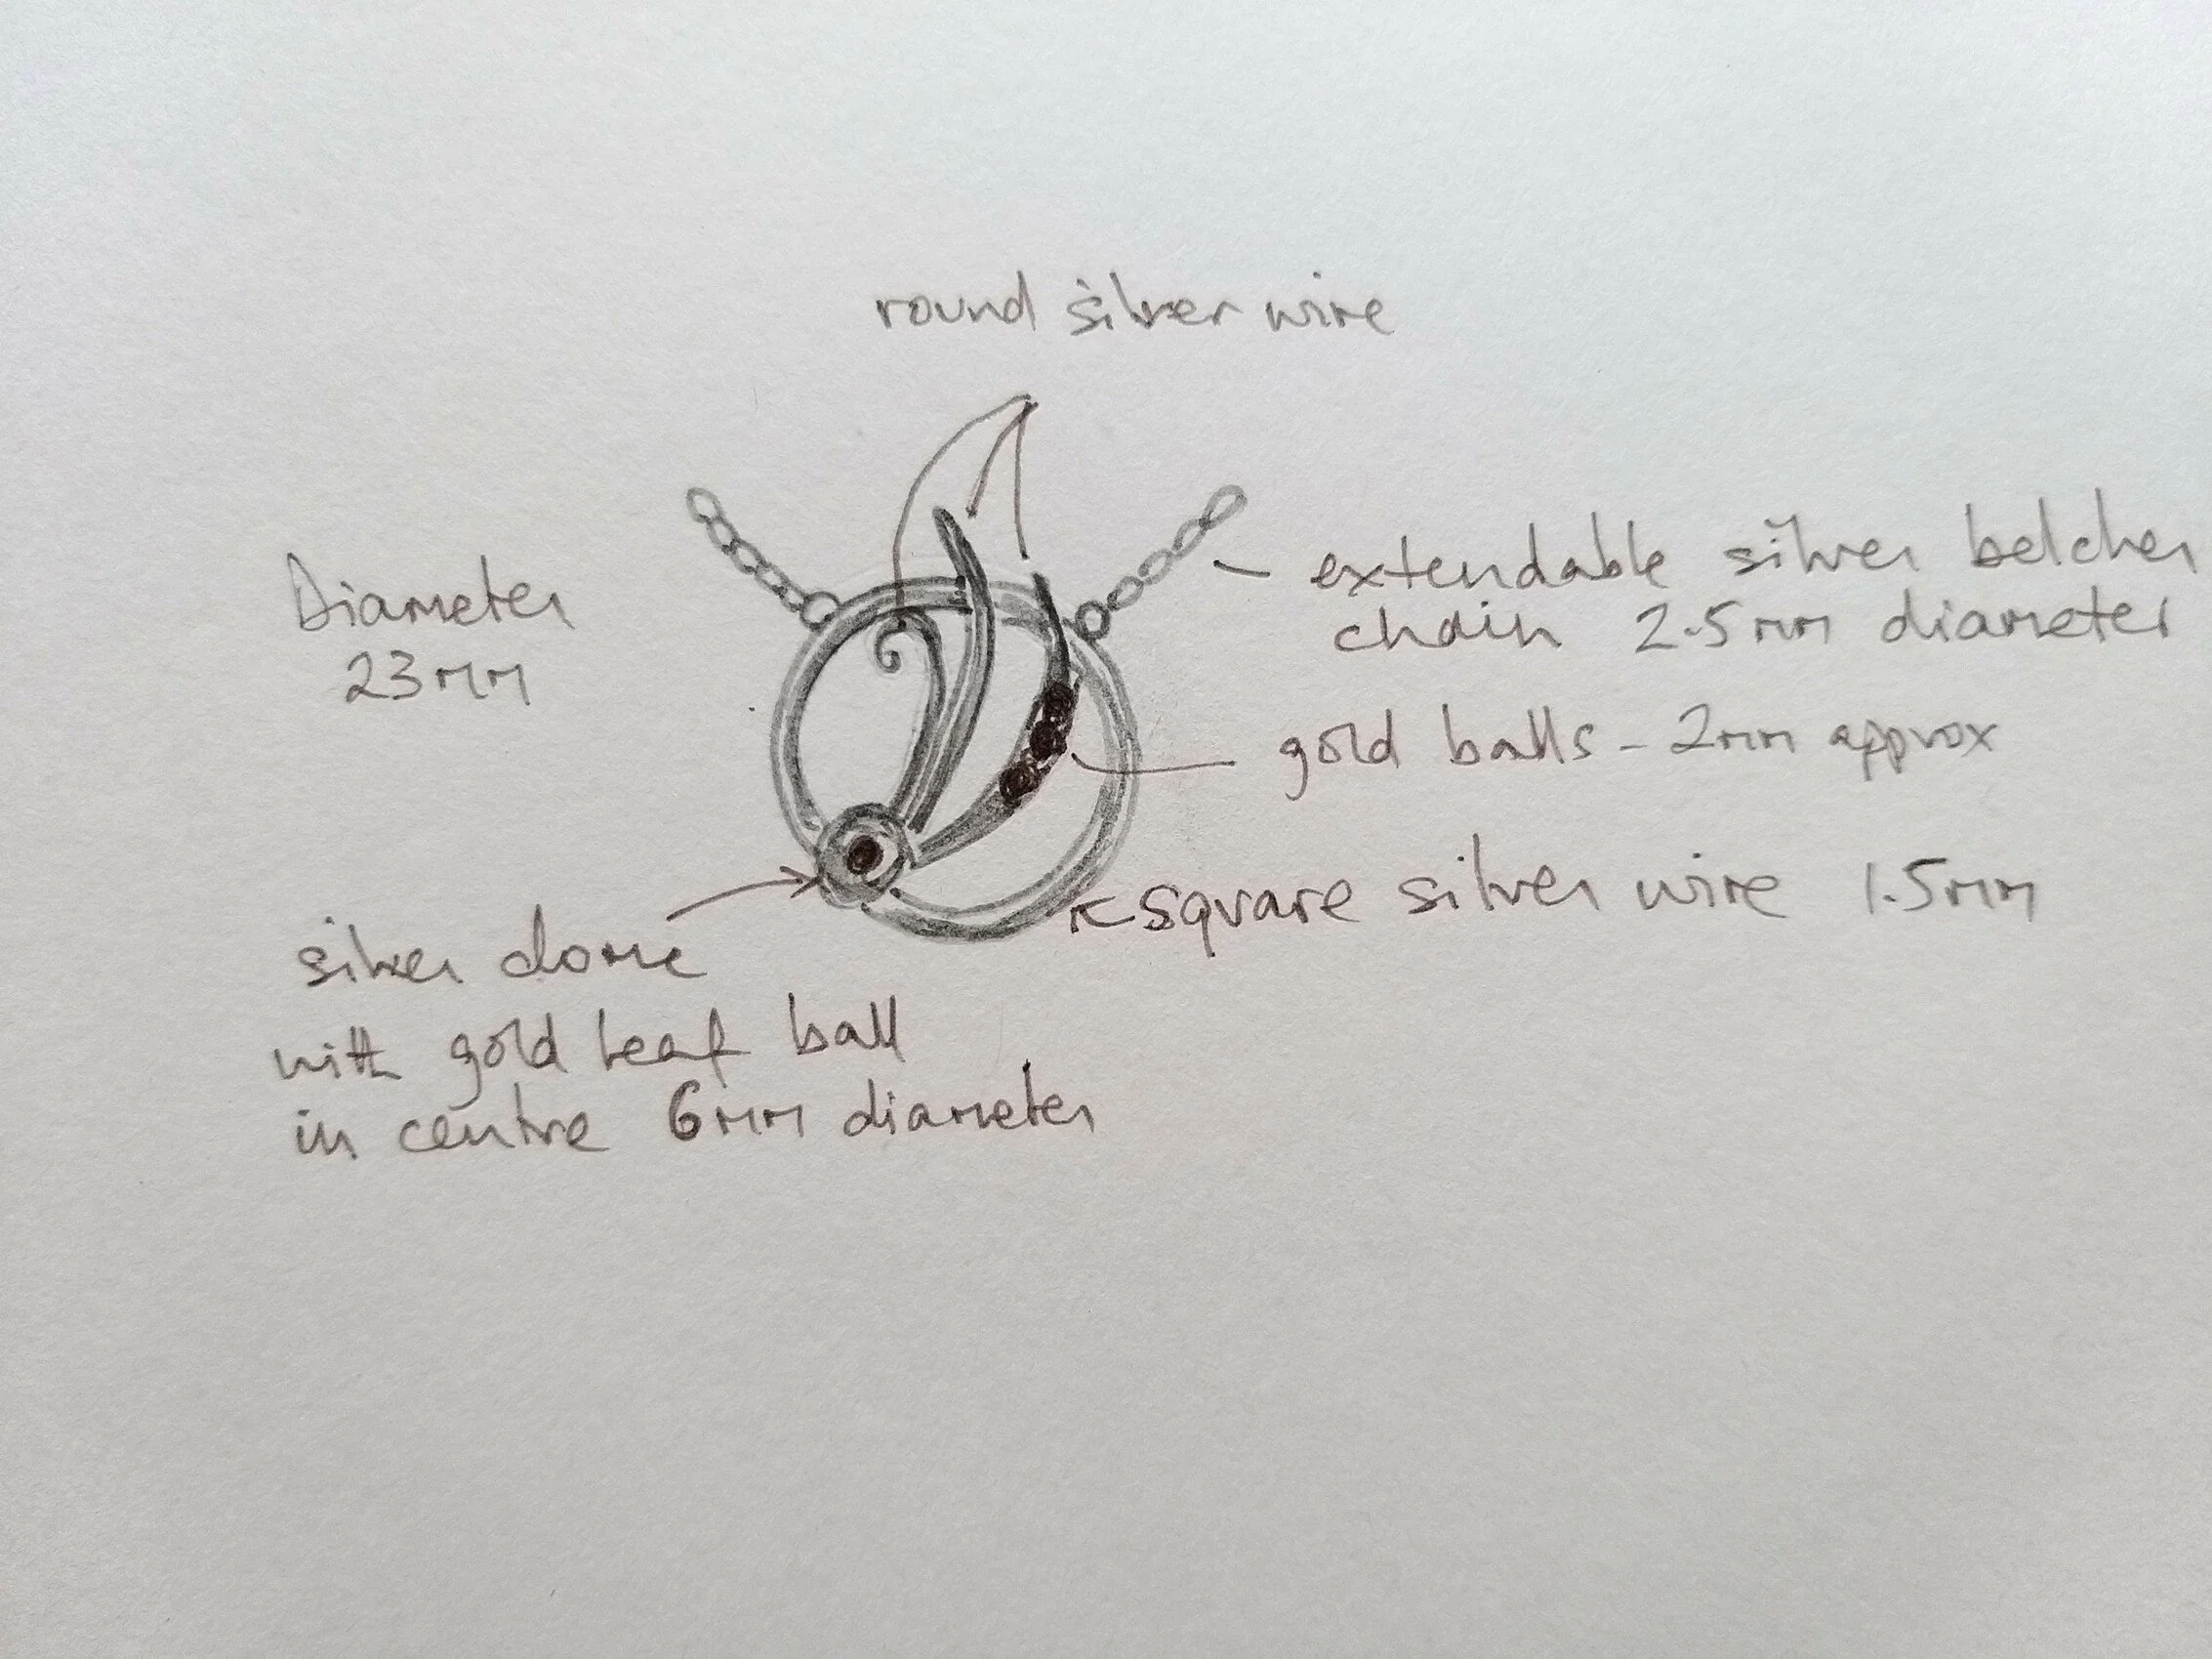 round silver wire
Diameter
23mm
extendable silver belcher
chain 2.5mm diameter
gold balls - 2mm approx
square silver wire 1.5mm
silver dome
with gold leaf ball
in centre 6mm diameter